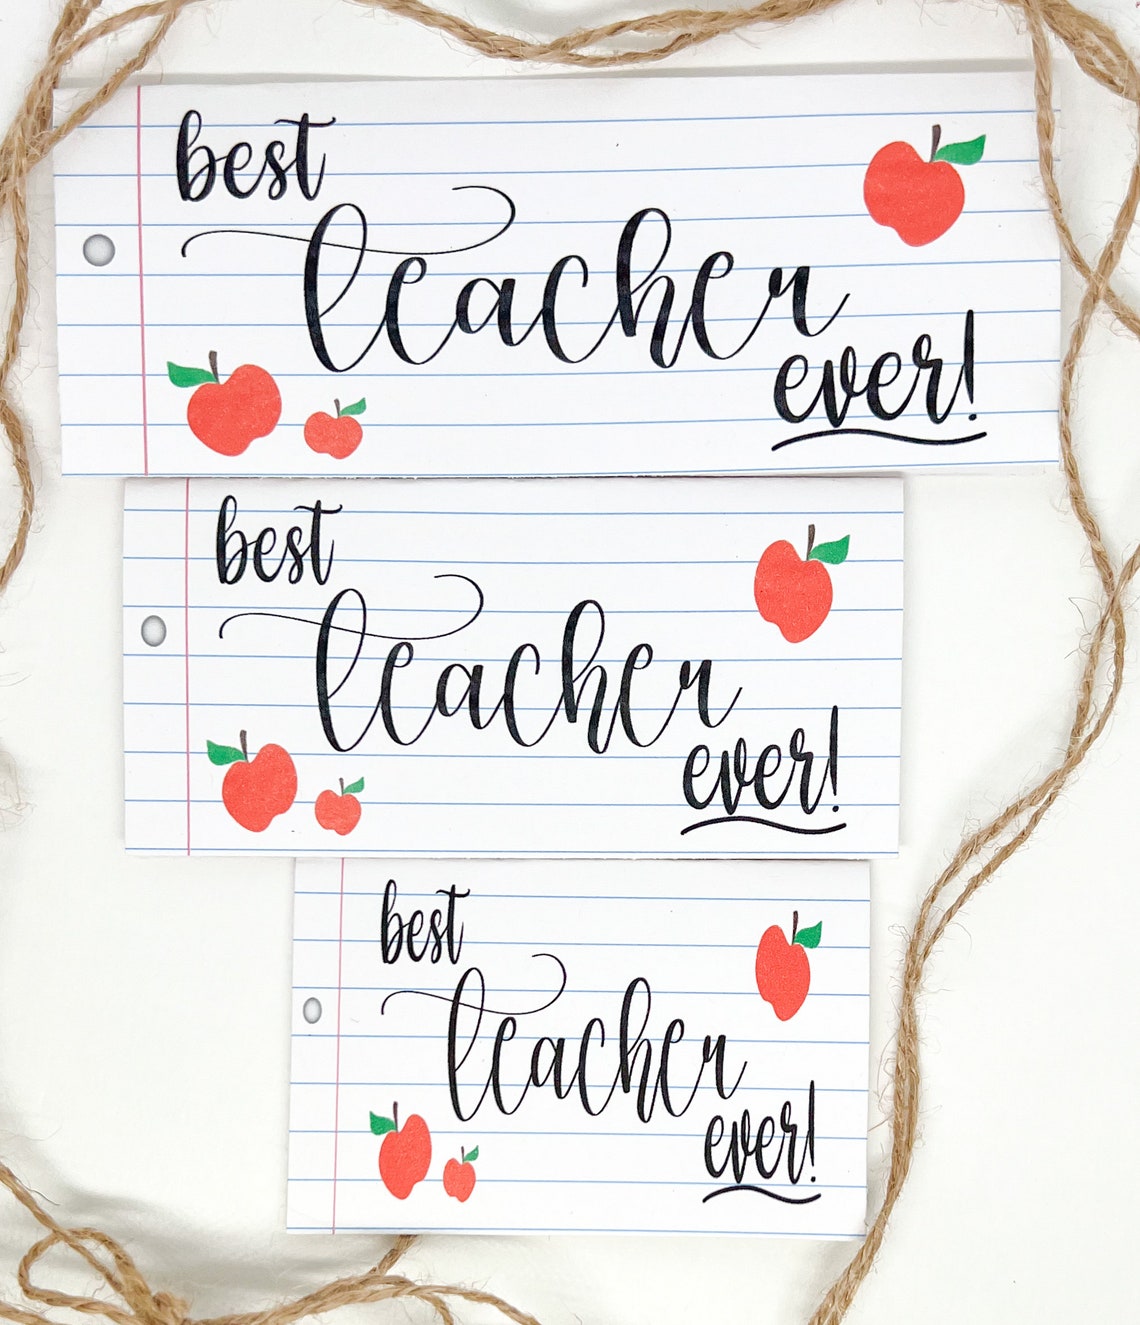 best
teacher
ever!
best
teacher
ever!
best
teacher
ever!